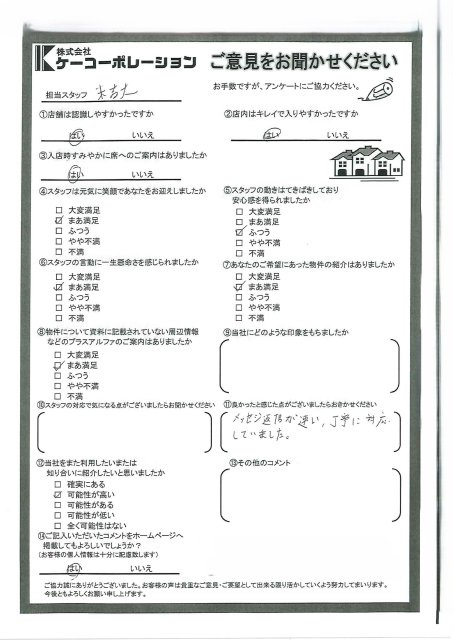 株式会社
ケーコーポレーション
ご意見をお聞かせください
担当スタッフ
お手数ですが、アンケートにご協力ください。
①店舗は認識しやすかったですか
はい いいえ
②店内はキレイで入りやすかったですか
はい いいえ
③入店時すみやかに席へのご案内はありましたか
はい いいえ
④スタッフは元気に笑顔であなたをお迎えしましたか
□ 大変満足
☑ まあ満足
□ ふつう
□ やや不満
□ 不満
⑤スタッフの動きはてきぱきしており
安心感を得られましたか
□ 大変満足
□ まあ満足
☑ ふつう
□ やや不満
□ 不満
⑥スタッフの言動に一生懸命さを感じられましたか
□ 大変満足
☑ まあ満足
□ ふつう
□ やや不満
□ 不満
⑦あなたのご希望にあった物件の紹介はありましたか
□ 大変満足
☑ まあ満足
□ ふつう
□ やや不満
□ 不満
⑧物件について資料に記載されていない周辺情報
などのプラスアルファのご案内はありましたか
□ 大変満足
☑ まあ満足
□ ふつう
□ やや不満
□ 不満
⑨当社にどのような印象をもちましたか
⑩スタッフの対応で気になる点がございましたらお聞かせください
⑪良かったと感じた点がございましたらおきかせください
メッセージ返信が速い,丁寧に対応
していました。
⑫当社をまた利用したいまたは
知り合いに紹介したいと思いましたか
□ 確実にある
☑ 可能性が高い
□ 可能性がある
□ 可能性が低い
□ 全く可能性はない
⑬その他のコメント
⑭ご記入いただいたコメントをホームページへ
掲載してもよろしいでしょうか?
(お客様の個人情報は十分に配慮致します)
はい いいえ
ご協力誠にありがとうございました。お客様の声は貴重なご意見・ご要望として出来る限り活かしていくよう努力してまいります。
今後ともよろしくお願い申し上げます。